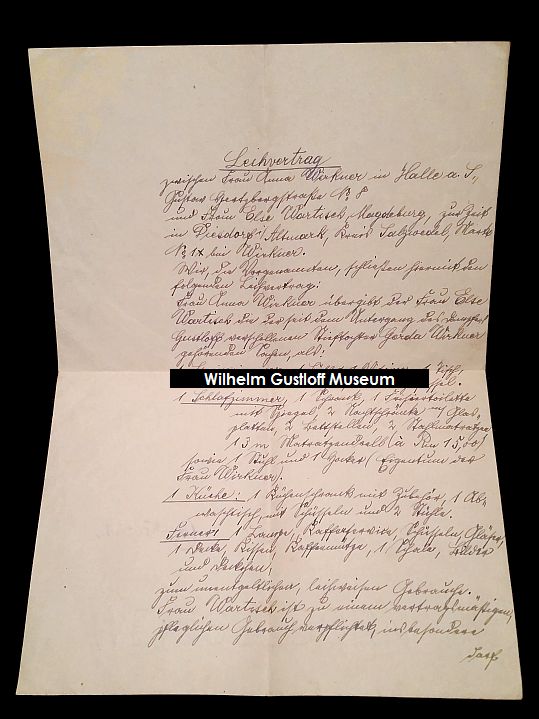 Leihvertrag
zwischen Frau Anna Wirkner in Halle a. S.,
Gustav Hertzbergstraße № 8
und Frau Else Wartisch, Magdeburg, zur Zeit
in Diesdorf/Altmark, Kreis Salzwedel, Markt
№ 17 bei Wirkner.
Wir, die Vorgenannten, schließen hiermit den
folgenden Leihvertrag:
Frau Anna Wirkner übergibt der Frau Else
Wartisch die der seit dem Untergang des Dampfers
Gustloff verschollenen Stieftochter Gerda Wirkner
gehörenden Sachen, als:
Wilhelm Gustloff Museum
1 Schlafzimmer, 1 Schrank, 1 Frisiertoilette
mit Spiegel, 2 Nachtschränke mit Glas-
platten, 2 Bettstellen, 2 Stahlmatratzen
13 m Matratzendrell (à Rm 15,00)
sowie 1 Stuhl und 1 Hocker (Eigentum der
Frau Wirkner).
1 Küche: 1 Küchenschrank mit Zubehör, 1 Ab-
waschtisch, mit Schüsseln und 2 Stühle.
Ferner: 1 Lampe, Kaffeeservice, Schüsseln, Gläser,
1 Decke, Kissen, Kaffeemütze, 1 Schale, Bilder
und Deckchen,
zum unentgeltlichen, leihweisen Gebrauche.
Frau Wartisch ist zu einem vertragsmäßigen,
pfleglichen Gebrauch verpflichtet, insbesondere
darf